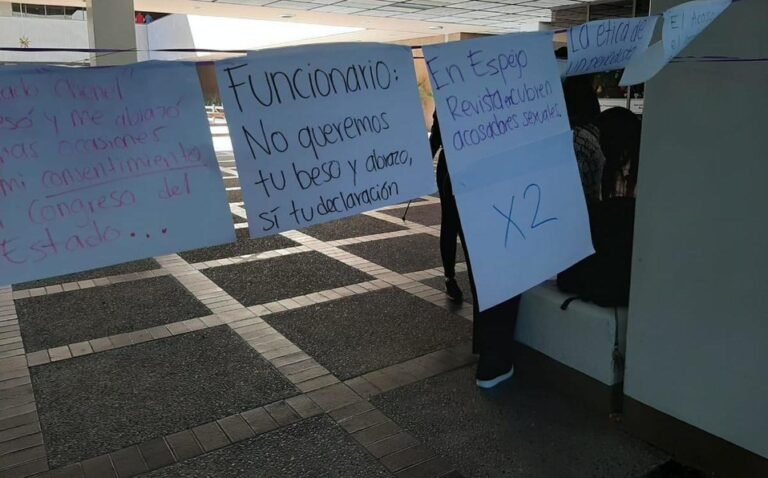 y me abrazó
ocasiones
mi consentimiento
Congreso del
Estado...
Funcionario:
No queremos
tu beso y abrazo,
sí tu declaración
En Espejo
Revista encubren
acosadores sexuales.
X2
La ética de
El